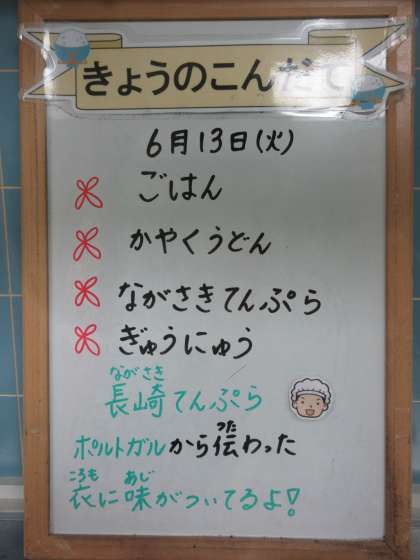 きょうのこんだて
6月13日(火)
ごはん
かやくうどん
ながさきてんぷら
ぎゅうにゅう
ながさき
長崎てんぷら
つた
ポルトガルから伝わった
ころも あじ
衣に味がついてるよ!